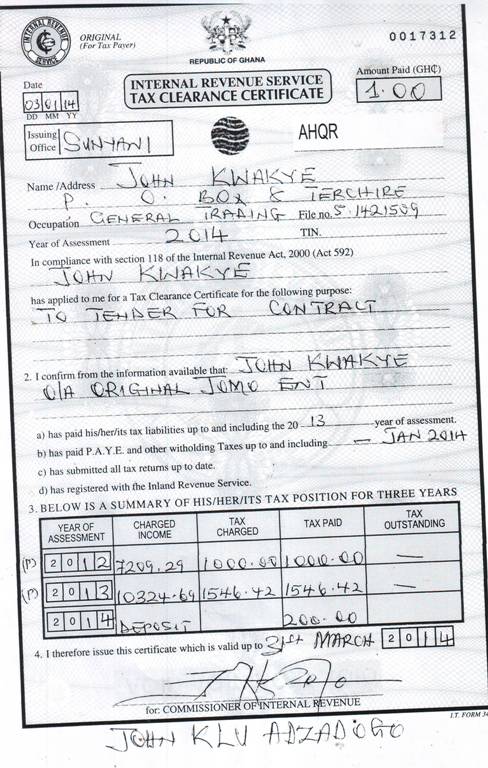 INTERNAL REVENUE SERVICE
ORIGINAL
(For Tax Payer)
REPUBLIC OF GHANA
0017312
Date
03 01 14
DD MM YY
INTERNAL REVENUE SERVICE
TAX CLEARANCE CERTIFICATE
Amount Paid (GH₵)
1.00
Issuing Office SUNYANI
AHQR
Name /Address JOHN KWAKYE
P. O. BOX 8 TERCHIRE
Occupation GENERAL TRADING File no. S. 1421509
Year of Assessment 2014 TIN.
In compliance with section 118 of the Internal Revenue Act, 2000 (Act 592)
JOHN KWAKYE
has applied to me for a Tax Clearance Certificate for the following purpose:
TO TENDER FOR CONTRACT
2. I confirm from the information available that: JOHN KWAKYE
O/A ORIGINAL JOMO ENT
a) has paid his/her/its tax liabilities up to and including the 20 13 year of assessment.
b) has paid P.A.Y.E. and other witholding Taxes up to and including — JAN 2014
c) has submitted all tax returns up to date.
d) has registered with the Inland Revenue Service.
3. BELOW IS A SUMMARY OF HIS/HER/ITS TAX POSITION FOR THREE YEARS
YEAR OF ASSESSMENT CHARGED INCOME TAX CHARGED TAX PAID TAX OUTSTANDING
(P) 2012 7209.29 1000.00 1000.00 —
(P) 2013 10324.69 1546.42 1546.42 —
2014 DEPOSIT 200.00
4. I therefore issue this certificate which is valid up to 31st MARCH 2014
for: COMMISSIONER OF INTERNAL REVENUE
I.T. FORM 34
JOHN KLU ADZADOGO